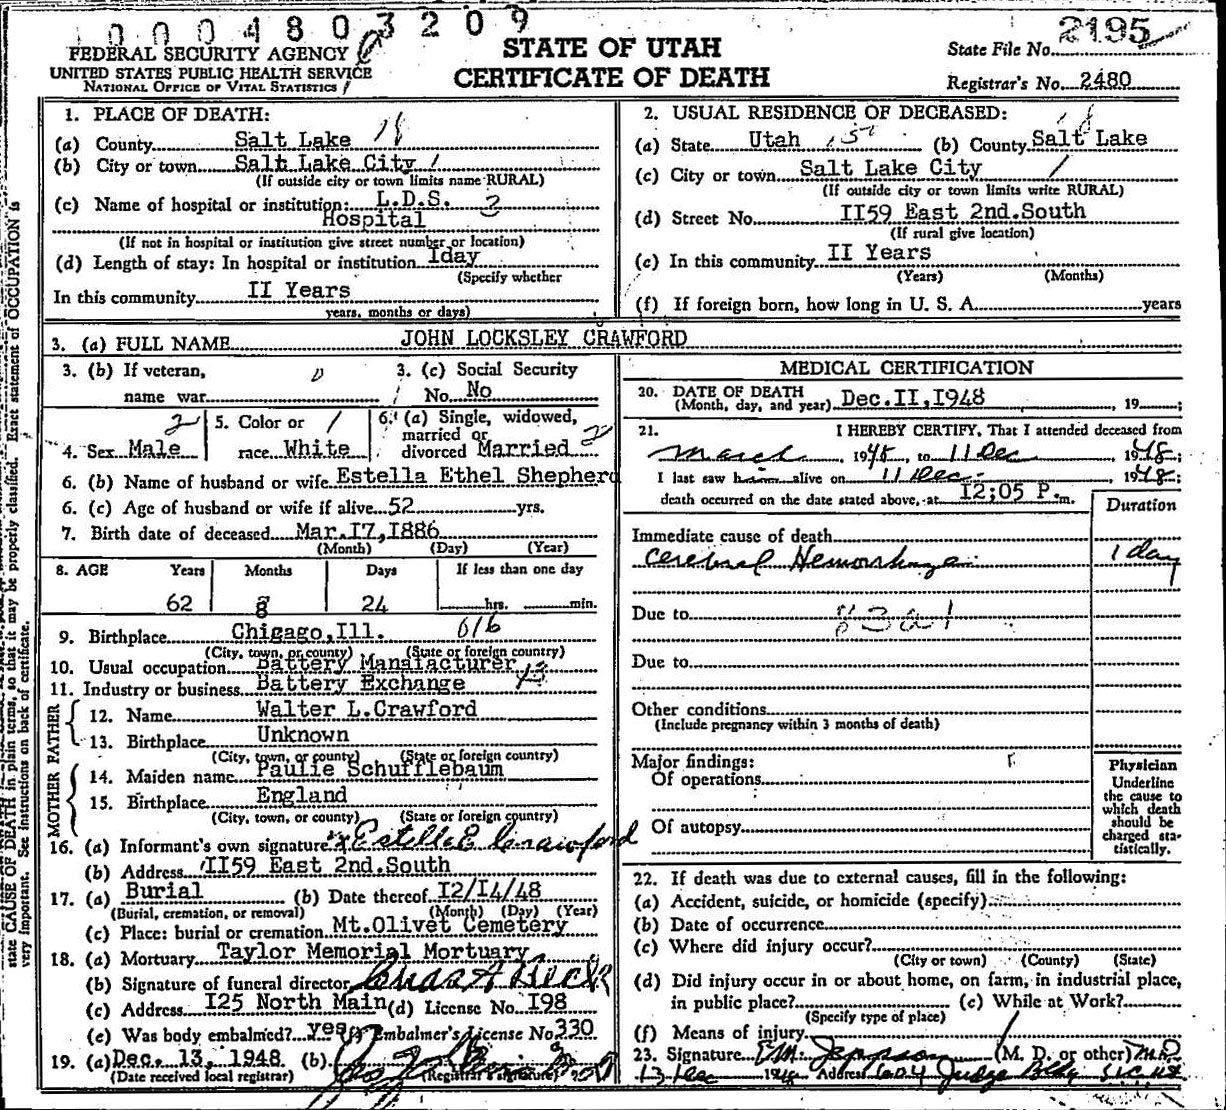 0004803209
FEDERAL SECURITY AGENCY
UNITED STATES PUBLIC HEALTH SERVICE
NATIONAL OFFICE OF VITAL STATISTICS
STATE OF UTAH
CERTIFICATE OF DEATH
State File No. 2195
Registrar's No. 2480
1. PLACE OF DEATH:
(a) County Salt Lake 18
(b) City or town Salt Lake City 1
(If outside city or town limits name RURAL)
(c) Name of hospital or institution: L.D.S. 3
Hospital
(If not in hospital or institution give street number or location)
(d) Length of stay: In hospital or institution Iday
(Specify whether
In this community II Years
years, months or days)
2. USUAL RESIDENCE OF DECEASED:
(a) State Utah (b) County Salt Lake
(c) City or town Salt Lake City 1
(If outside city or town limits write RURAL)
(d) Street No. II59 East 2nd.South
(If rural give location)
(e) In this community II Years
(Years) (Months)
(f) If foreign born, how long in U. S. A. years
3. (a) FULL NAME JOHN LOCKSLEY CRAWFORD
3. (b) If veteran,
name war
3. (c) Social Security
No. No
4. Sex Male 2
5. Color or
race White 1
6. (a) Single, widowed,
married or
divorced Married 2
6. (b) Name of husband or wife Estella Ethel Shepherd
6. (c) Age of husband or wife if alive 52 yrs.
7. Birth date of deceased Mar.I7,I886
(Month) (Day) (Year)
8. AGE Years Months Days If less than one day
62 8 24 hrs. min.
9. Birthplace Chigago,Ill. 616
(City, town, or county) (State or foreign country)
10. Usual occupation Battery Manafacturer
11. Industry or business Battery Exchange
FATHER
12. Name Walter L.Crawford
13. Birthplace Unknown
(City, town, or county) (State or foreign country)
MOTHER
14. Maiden name Paulie Schufflebaum
15. Birthplace England
(City, town, or county) (State or foreign country)
16. (a) Informant's own signature x Estella E Crawford
(b) Address II59 East 2nd.South
17. (a) Burial (b) Date thereof I2/I4/48
(Burial, cremation, or removal) (Month) (Day) (Year)
(c) Place: burial or cremation Mt.Olivet Cemetery
18. (a) Mortuary Taylor Memorial Mortuary
(b) Signature of funeral director
(c) Address I25 North Main (d) License No. I98
(e) Was body embalmed? yes (f) Embalmer's License No 330
19. (a) Dec. 13, 1948 (b)
(Date received local registrar) (Registrar's signature)
MEDICAL CERTIFICATION
20. DATE OF DEATH
(Month, day, and year) Dec.II,I948 , 19 ;
21. I HEREBY CERTIFY, That I attended deceased from
March , 1948, to 11 Dec , 1948;
I last saw him alive on 11 Dec , 1948;
death occurred on the date stated above, at I2;05 P.m.
Duration
Immediate cause of death
Cerebral Hemorrhage 1 day
Due to 83a1
Due to
Other conditions
(Include pregnancy within 3 months of death)
Major findings:
Of operations
Of autopsy
Physician
Underline
the cause to
which death
should be
charged sta-
tistically.
22. If death was due to external causes, fill in the following:
(a) Accident, suicide, or homicide (specify)
(b) Date of occurrence
(c) Where did injury occur?
(City or town) (County) (State)
(d) Did injury occur in or about home, on farm, in industrial place,
in public place? (e) While at Work?
(Specify type of place)
(f) Means of injury
23. Signature E.M. Jeppson (M. D. or other) M.D.
13 Dec 1948 Address 604 Judge Bldg S.L.C. Ut
state CAUSE OF DEATH in plain terms, so that it may be properly classified. Exact statement of OCCUPATION is
very important. See instructions on back of certificate.